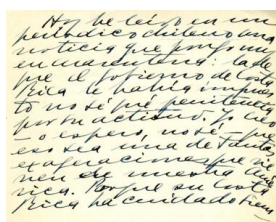 Hoy he leído en un
periódico chileno una
noticia que pongo muy
en cuarentena: la de
que el gobierno de Costa
Rica le había impues
to no sé qué penitencia
por su actitud. Yo creo
– o espero, no sé – que
eso sea una de tantas
exageraciones que vie
nen de nuestra Amé
rica. Porque su Costa
Rica ha cuidado